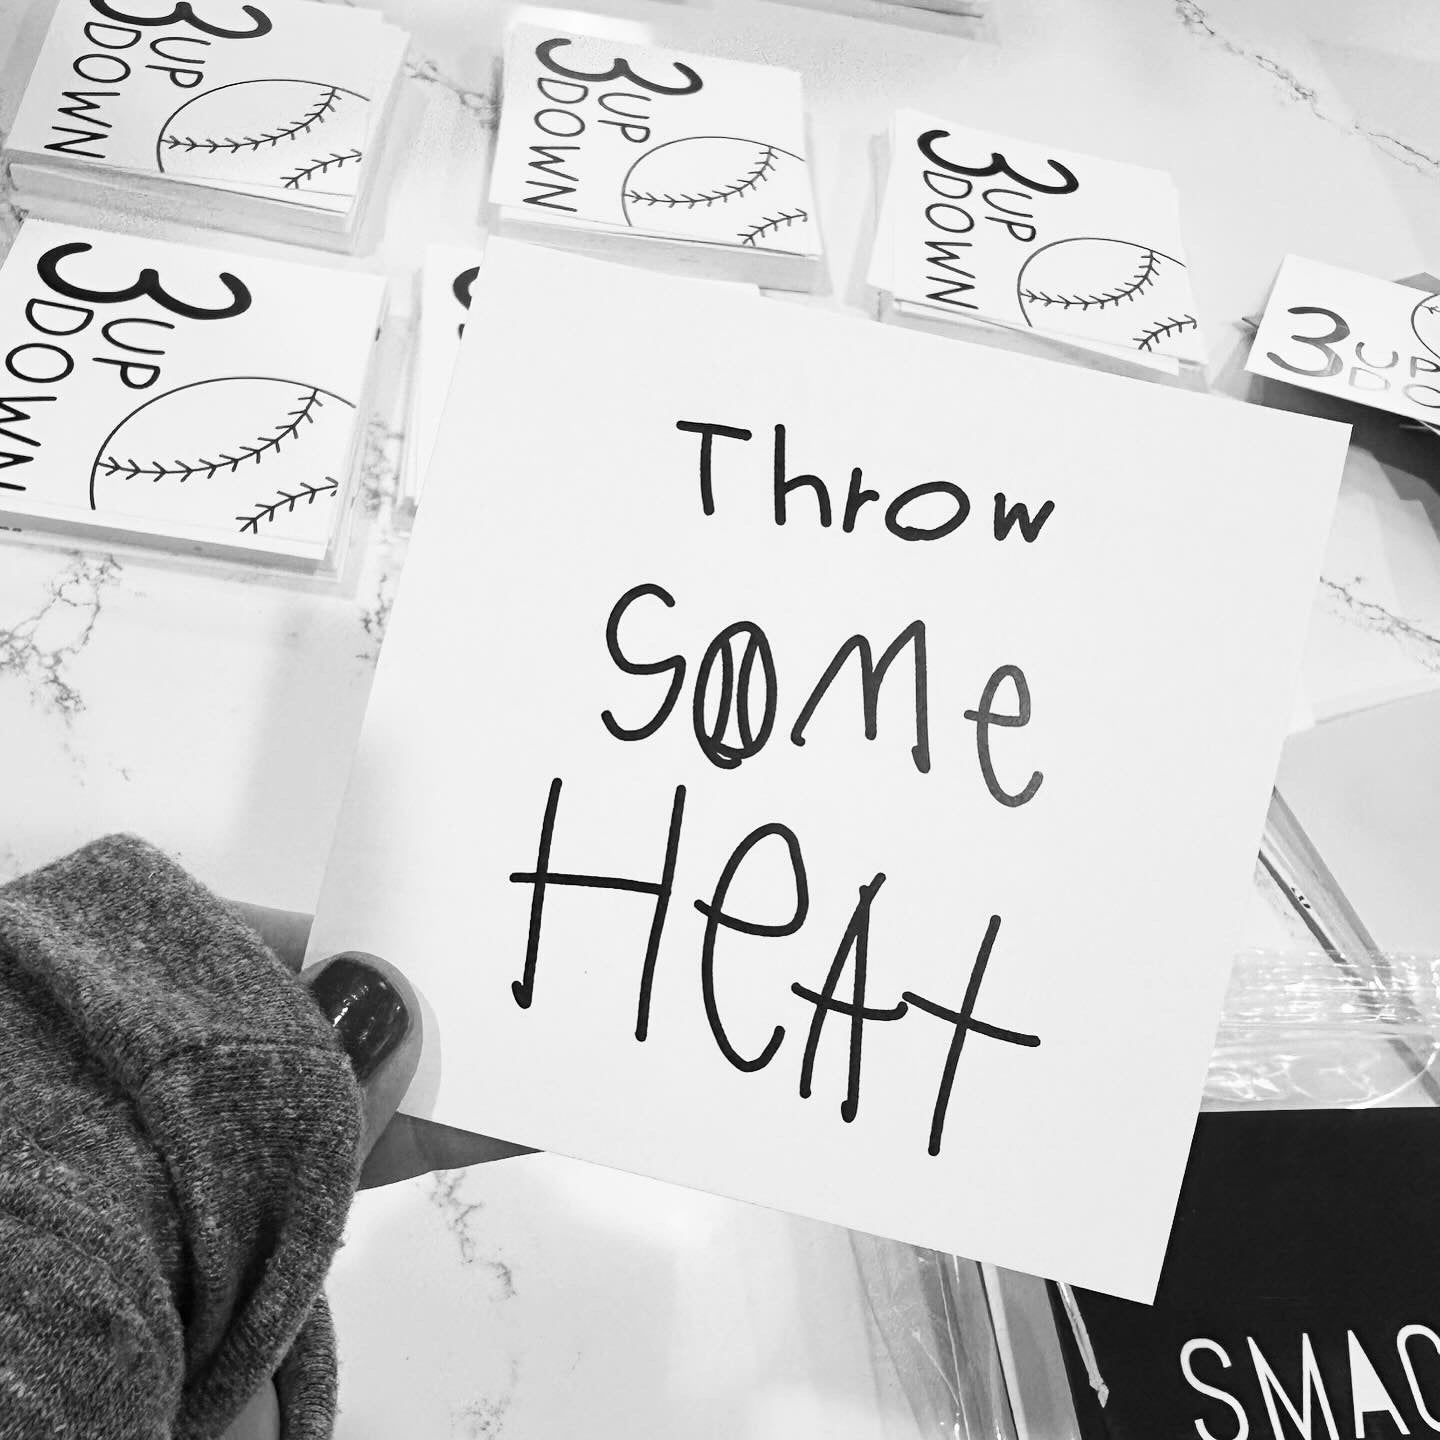 3 UP
DOWN
3 UP
DOWN
3 UP
DOWN
3 UP
DOWN
3 UP
Throw
SOMe
HeAt